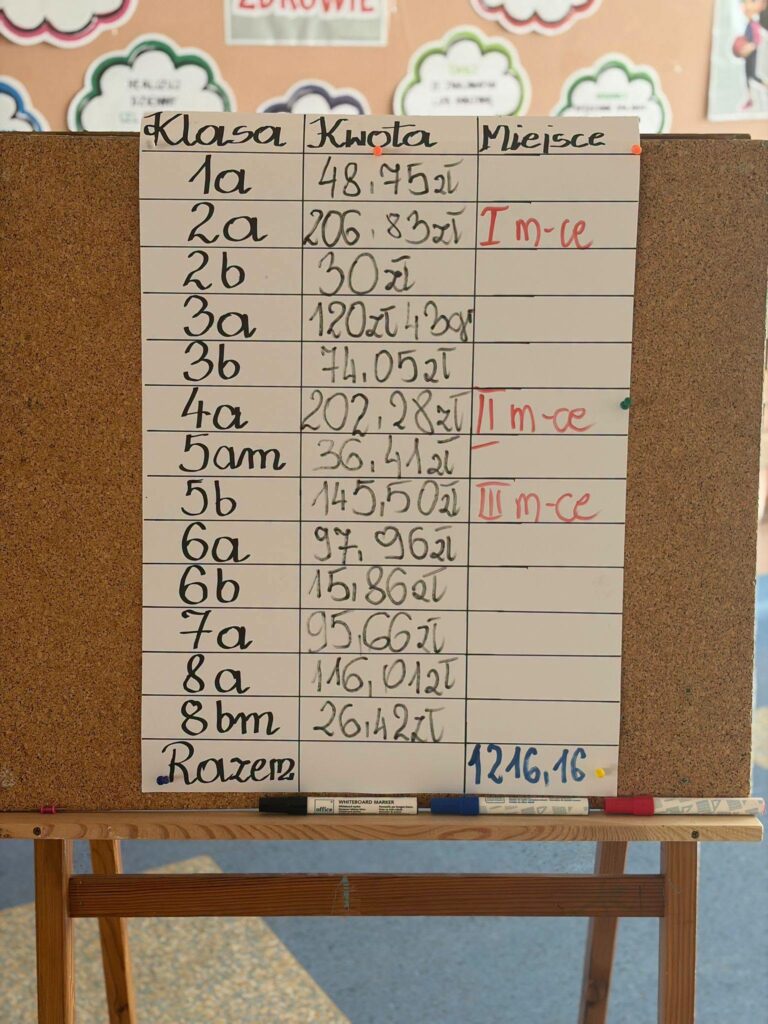 ZDROWIE
Klasa Kwota Miejsce
1a 48,75zł
2a 206,83zł I m-ce
2b 30zł
3a 120zł 43gr
3b 74,05zł
4a 202,28zł II m-ce
5am 36,41zł
5b 145,50zł III m-ce
6a 97,96zł
6b 15,86zł
7a 95,66zł
8a 116,01zł
8bm 26,42zł
Razem 1216,16
office WHITEBOARD MARKER